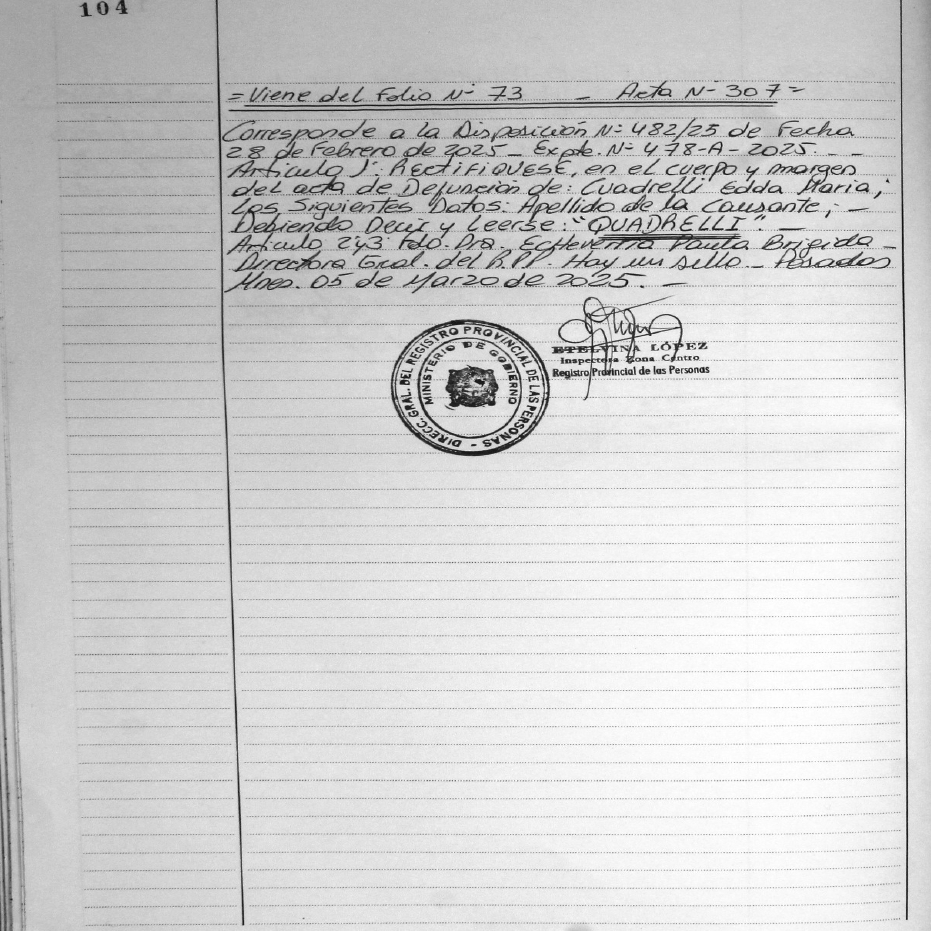 104
= Viene del Folio Nº 73 _ Acta Nº 307 =
Corresponde a la Disposición Nº 482/25 de Fecha
28 de Febrero de 2025 _ Expte. Nº 478-A-2025. _ _
Articulo 1º: RECTIFIQUESE, en el cuerpo y margen
del acta de Defunción de: Cuadrelli Edda Maria;
Los Siguientes Datos: Apellido de la Causante; _
Debiendo Decir y Leerse: "QUADRELLI". _
Articulo 2y3 Fdo. Dra. Echeverria Paula Brigida _
Directora Gral. del R.P.P. Hay un sello _ Posadas
Mnes. 05 de Marzo de 2025. _
DIRECC. GRAL. DEL REGISTRO PROVINCIAL DE LAS PERSONAS -
MINISTERIO DE GOBIERNO
ETELVINA LÓPEZ
Inspectora Zona Centro
Registro Provincial de las Personas